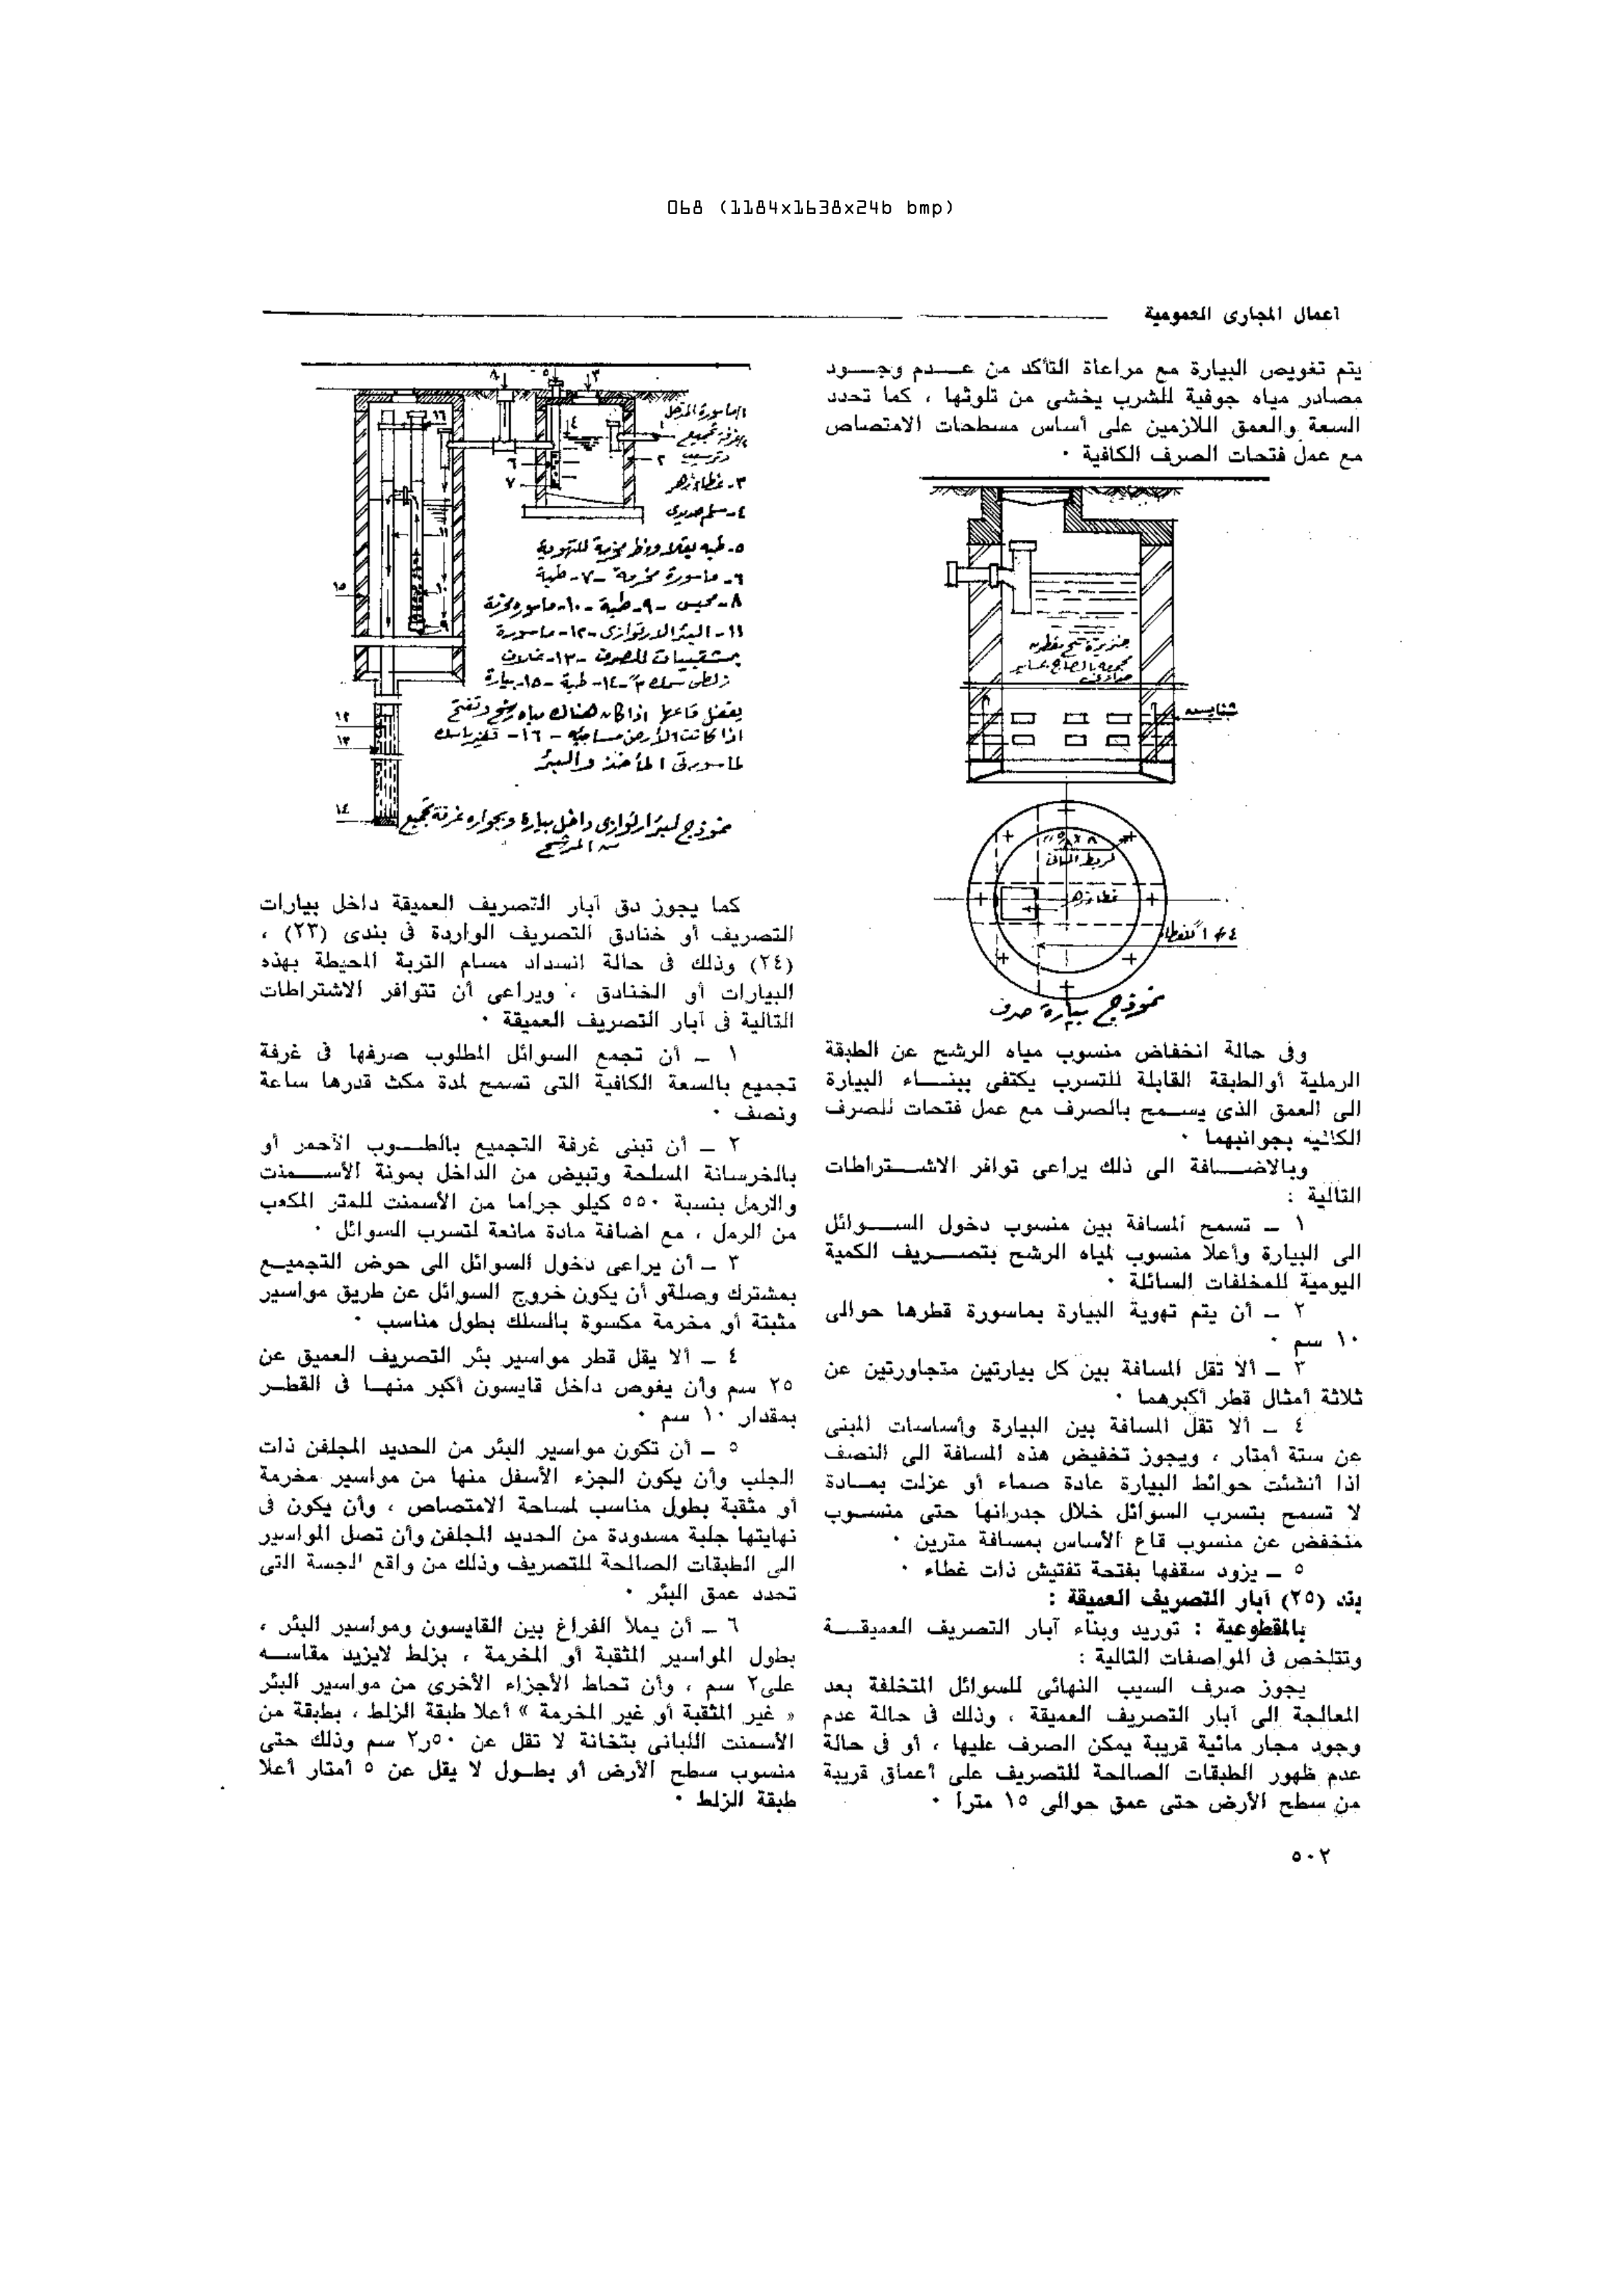 068 (1184x1638x24b bmp)
أعمال المجارى العمومية
يتم تغويص البيارة مع مراعاة التأكد من عـــدم وجـــود
مصادر مياه جوفية للشرب يخشى من تلوثها ، كما تحدد
السعة والعمق اللازمين على أساس مسطحات الامتصاص
مع عمل فتحات الصرف الكافية ٠
غطاء زهر
نموذج بيارة صرف
وفى حالة انخفاض منسوب مياه الرشح عن الطبقة
الرملية أوالطبقة القابلة للتسرب يكتفى ببنـــاء البيارة
الى العمق الذى يســمح بالصرف مع عمل فتحات للصرف
بجوانبهما ٠
وبالاضـــافة الى ذلك يراعى توافر الاشـــتراطات
التالية :
١ ــ تسمح المسافة بين منسوب دخول الســـوائل
الى البيارة وأعلا منسوب لمياه الرشح بتصـــريف الكمية
اليومية للمخلفات السائلة ٠
٢ ــ أن يتم تهوية البيارة بماسورة قطرها حوالى
١٠ سم ٠
٣ ــ ألا تقل المسافة بين كل بيارتين متجاورتين عن
ثلاثة أمثال قطر أكبرهما ٠
٤ ــ ألا تقل المسافة بين البيارة وأساسات المبنى
عن ستة أمتار ، ويجوز تخفيض هذه المسافة الى النصف
اذا أنشئت حوائط البيارة عادة صماء أو عزلت بمــادة
لا تسمح بتسرب السوائل خلال جدرانها حتى منســوب
منخفض عن منسوب قاع الأساس بمسافة مترين ٠
٥ ــ يزود سقفها بفتحة تفتيش ذات غطاء ٠
بند (٢٥) آبار التصريف العميقة :
بالمقطوعية : توريد وبناء آبار التصريف العميقـــة
وتتلخص فى المواصفات التالية :
يجوز صرف السيب النهائى للسوائل المتخلفة بعد
المعالجة الى آبار التصريف العميقة ، وذلك فى حالة عدم
وجود مجار مائية قريبة يمكن الصرف عليها ، أو فى حالة
عدم ظهور الطبقات الصالحة للتصريف على أعماق قريبة
من سطح الأرض حتى عمق حوالى ١٥ مترا ٠
١- ماسورة المدخل
٢- غرفة تجميع
وترسيب
٣- غطاء زهر
٤- سلم حديدى
٦- ماسورة مخرمة -٧- طبة
٨- محبس -٩- طبة -١٠- ماسورة مخرمة
١١- البئر الارتوازى -١٢- ماسورة
زلطى سمك ٣" -١٤- طبة -١٥- بيارة
نموذج لبئر ارتوازى داخل بيارة وبجواره غرفة تجميع
كما يجوز دق آبار التصريف العميقة داخل بيارات
التصريف أو خنادق التصريف الواردة فى بندى (٢٣) ،
(٢٤) وذلك فى حالة انسداد مسام التربة المحيطة بهذه
البيارات أو الخنادق ، ويراعى أن تتوافر الاشتراطات
التالية فى آبار التصريف العميقة ٠
١ ــ أن تجمع السوائل المطلوب صرفها فى غرفة
تجميع بالسعة الكافية التى تسمح لمدة مكث قدرها ساعة
ونصف ٠
٢ ــ أن تبنى غرفة التجميع بالطـــوب الأحمر أو
بالخرسانة المسلحة وتبيض من الداخل بمونة الأســـمنت
والرمل بنسبة ٥٥٠ كيلو جراما من الأسمنت للمتر المكعب
من الرمل ، مع اضافة مادة مانعة لتسرب السوائل ٠
٣ ــ أن يراعى دخول السوائل الى حوض التجميـــع
بمشترك وصلةو أن يكون خروج السوائل عن طريق مواسير
مثبتة أو مخرمة مكسوة بالسلك بطول مناسب ٠
٤ ــ ألا يقل قطر مواسير بئر التصريف العميق عن
٢٥ سم وأن يغوص داخل قايسون أكبر منهــا فى القطــر
بمقدار ١٠ سم ٠
٥ ــ أن تكون مواسير البئر من الحديد المجلفن ذات
الجلب وأن يكون الجزء الأسفل منها من مواسير مخرمة
أو مثقبة بطول مناسب لمساحة الامتصاص ، وأن يكون فى
نهايتها جلبة مسدودة من الحديد المجلفن وأن تصل المواسير
الى الطبقات الصالحة للتصريف وذلك من واقع الجسة التى
تحدد عمق البئر ٠
٦ ــ أن يملأ الفراغ بين القايسون ومواسير البئر ،
بطول المواسير المثقبة أو المخرمة ، بزلط لايزيد مقاســه
على٢ سم ، وأن تحاط الأجزاء الأخرى من مواسير البئر
« غير المثقبة أو غير المخرمة » أعلا طبقة الزلط ، بطبقة من
الأسمنت اللبانى بتخانة لا تقل عن ٢٫٥٠ سم وذلك حتى
منسوب سطح الأرض أو بطــول لا يقل عن ٥ أمتار أعلا
طبقة الزلط ٠
٥٠٢